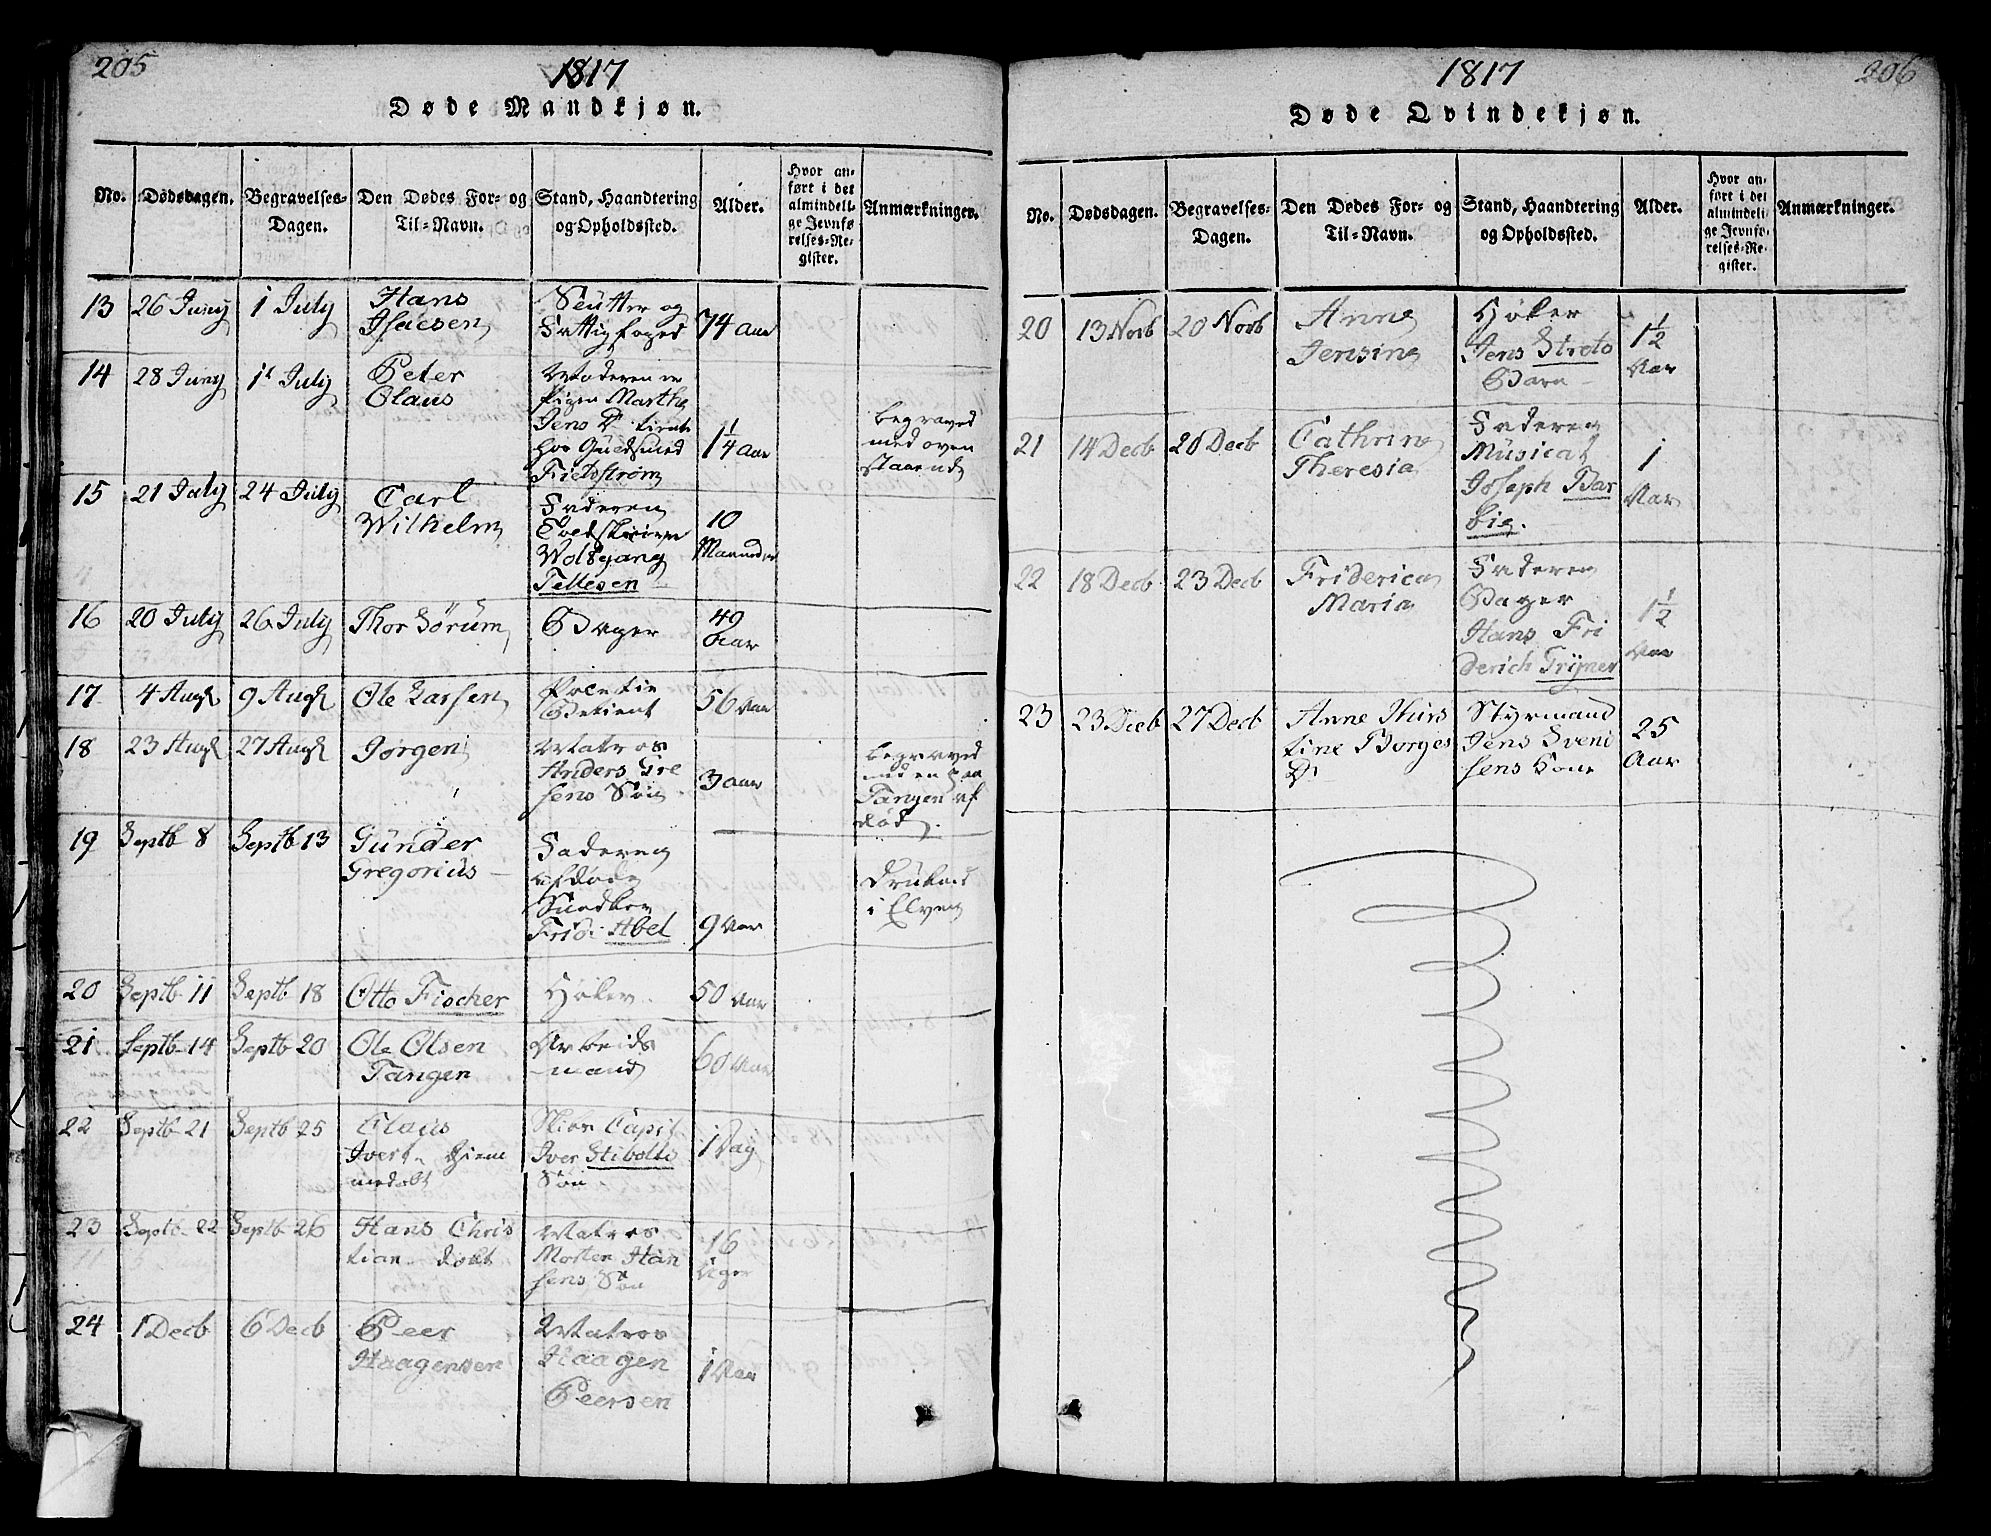 205
1817
Døde Mandkjøn.
No. Dødsdagen. Begravelses-Dagen. Den Dødes For- og Til-Navn. Stand, Haandtering og Opholdssted. Alder. Hvor anført i det almindelige Jevnførelses-Register. Anmærkninger.
13 26 Juny 1 July Hans
Isacsen og
Fattigfoged 74 Aar
14 28 Juny 1t July Peter
Olaus
Moderen er
Pigen Marthe
Jens D. tient
hos Guldsmed
1 1/4 Aar
begraved
med oven
staaende
15 21 July 24 July Carl
Wilhelm
Faderen
Wolfgang
Tellesen
10
Maaneder
16 20 July 26 July Thor Sørum Bager 49
Aar
17 4 Augt 9 Augt Ole Larsen
Betient 56 Aar
18 23 Augt 27 Augt Jørgen
Matros
Anders Gre
sens Søn
3 Aar
begraved
med en paa
Tangen af
død
19 Septb 8 Septb 13 Gunder
Gregorius
Faderen
afdøde
Snedker
Frid: Abel
9 Aar
Druknet
i Elven
20 Septb 11 Septb 18 Otto Fischer Høker 50 Aar
21 Septb 14 Septb 20 Ole Olsen
Tangen
Arbeids
mand
60 Aar
22 Septb 21 Septb 25 Claus
Ivert hjeme
medøbt
Skibs Capit
Iver Stibolts
Søn
1 Dag
23 Septb 22 Septb 26 Hans Chris
tian døbt
Matros
Morten Han
sens Søn
16
Uger
24 1 Decb 6 Decb Peer
Haagensen
Matros
Haagen
Peersen
1 Aar
1817
206
Døde Qvindekjøn.
No. Dødsdagen. Begravelses-Dagen. Den Dødes For- og Til-Navn. Stand, Haandtering og Opholdssted. Alder. Hvor anført i det almindelige Jevnførelses-Register. Anmærkninger.
20 13 Novb 20 Novb Anne
Jensine
Høker
Jens Streto
Barn
1 1/2
Aar
21 14 Decb 20 Decb Cathrine
Theresia
Faderen
Musicat
Joseph Bar
bie.
1
Aar
22 18 Decb 23 Decb Friderica
Maria
Faderen
Bager
Hans Fri
derich Trÿner
1 1/2
Aar
23 23 Decb 27 Decb Anne Kirs
tine Borges
D
Styrmand
Jens Sveni
sens Kone
25
Aar